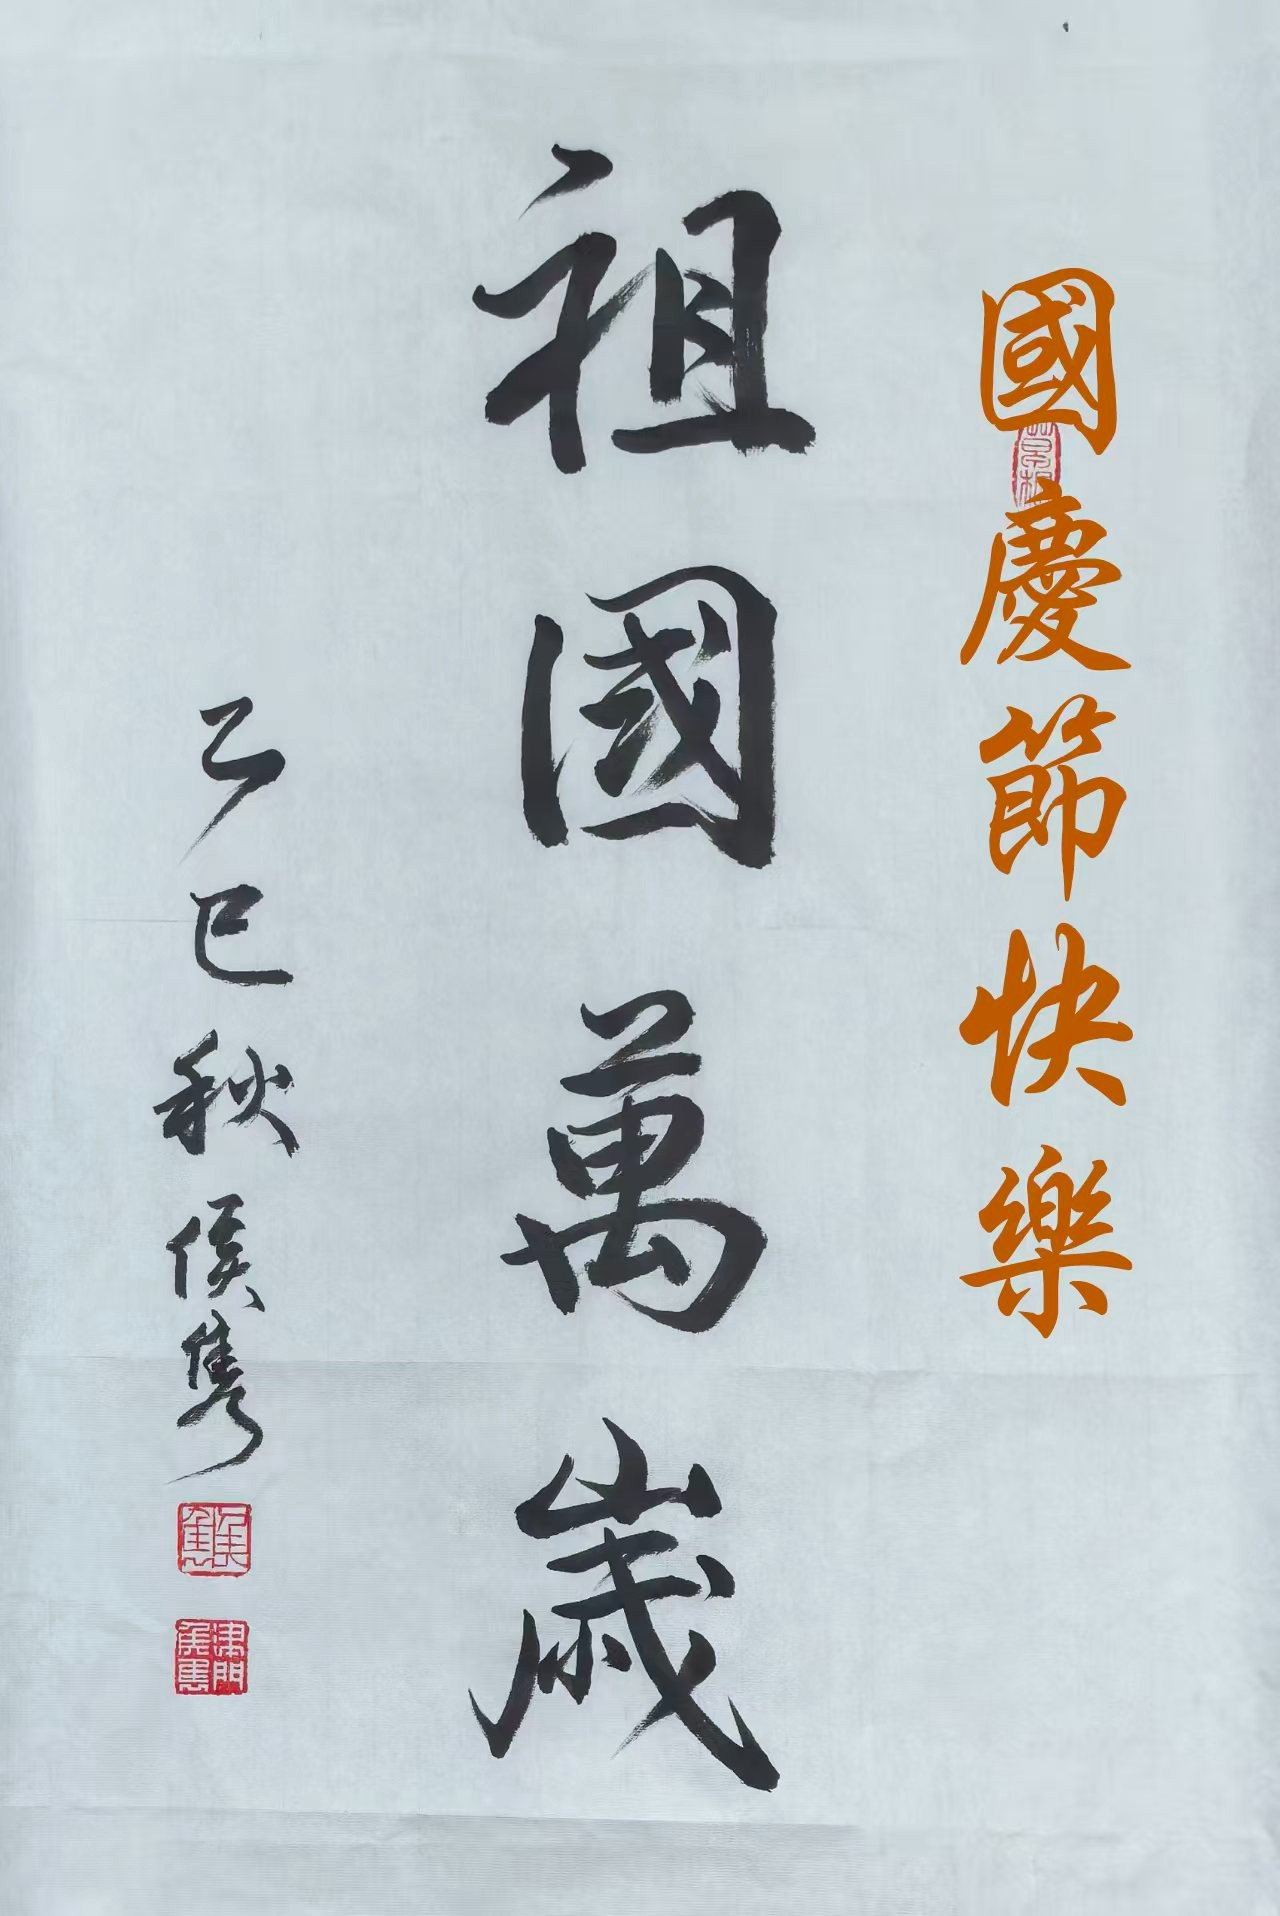 國慶節快樂
祖國萬歲
乙巳秋 侯雋